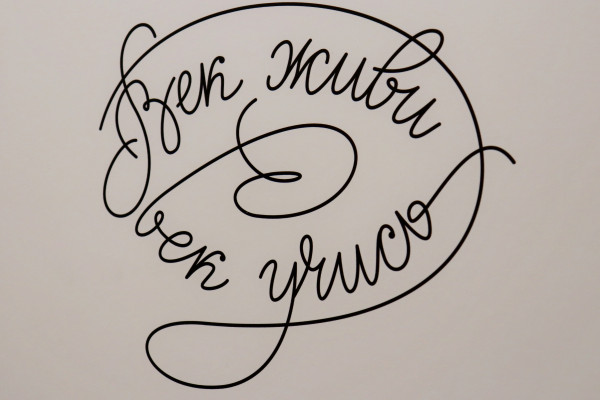 Век живи
век учись